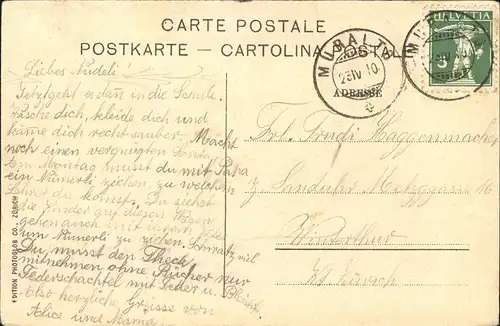 CARTE POSTALE
POSTKARTE — CARTOLINA POSTALE
HELVETIA
5
MURALTO
23 IV 10
ADRESSE
Liebes Nudeli!
Jetzt geht es dann in die Schule.
Wasche dich, kleide dich und
käme dich recht sauber. Macht
noch einen vergnügten Sonntag
Am Montag musst du mit Papa
ein Nümerli ziehen, zu welchem
Lehrer du kommst. Du siehst
die Kinder auf diesen
um Nümerli zu ziehen.
Du musst den Theek
mitnehmen ohne Bücher nur
Federschachtel mit Feder u. Bleistift
Also herzliche Grüsse von
Alice und Mama
Frl. Trudi Haggenmacher
z. Sandhr Metzggasse 16
Winterthur
Kt. Zürich
EDITION PHOTOGLOB CO., ZÜRICH